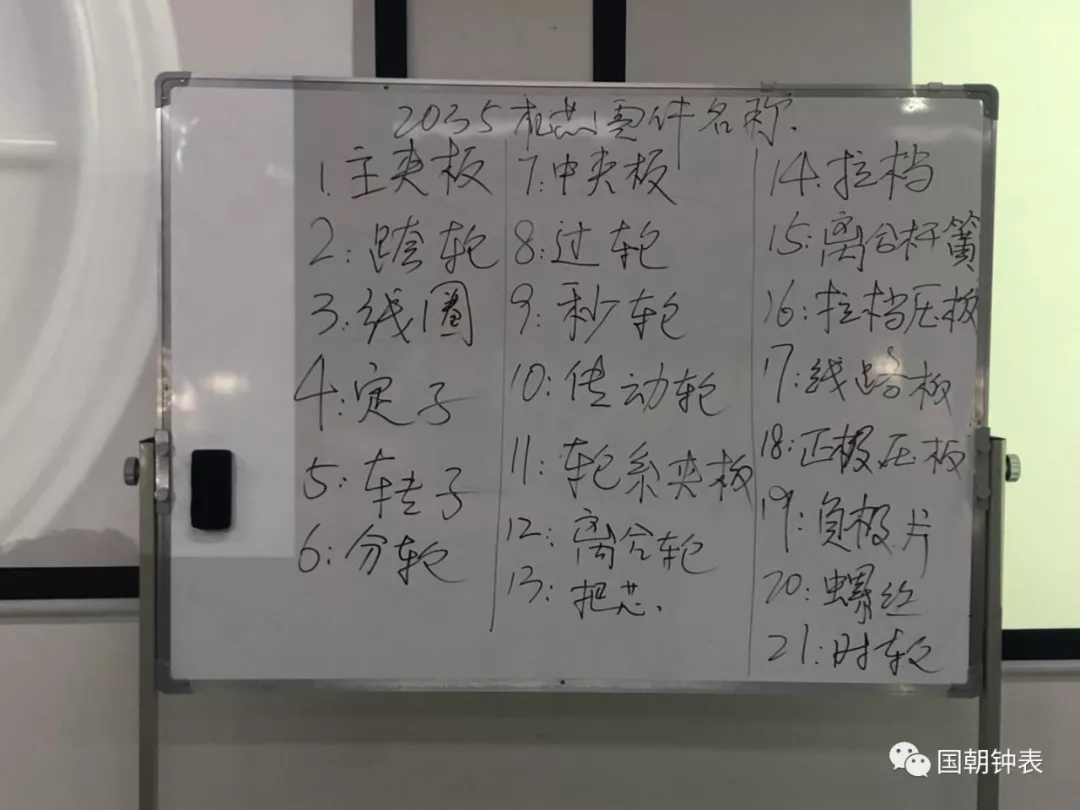 2035机芯零件名称.
1.主夹板
2:跨轮
3:线圈
4:定子
5:转子
6:分轮
7:中夹板
8:过轮
9:秒轮
10:传动轮
11:轮系夹板
12:离合轮
13:把芯.
14:拉档
15:离合杆簧
16:拉档压板
17:线路板
18:正极压板
19:负极片
20:螺丝
21:时轮
国朝钟表